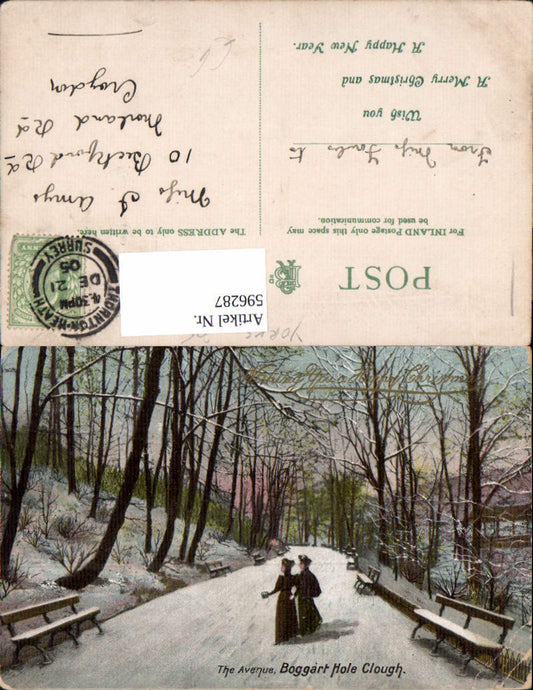 POST
For INLAND Postage only this space may
be used for communication.
The ADDRESS only to be written here.
From Miss
to
Wish you
A Merry Christmas and
A Happy New Year.
Miss
10
Rd
Morland Rd
Croydon
THORNTON-HEATH
4.30PM
DE 21
05
SURREY
Artikel Nr.
596287
The Avenue, Boggart Hole Clough.